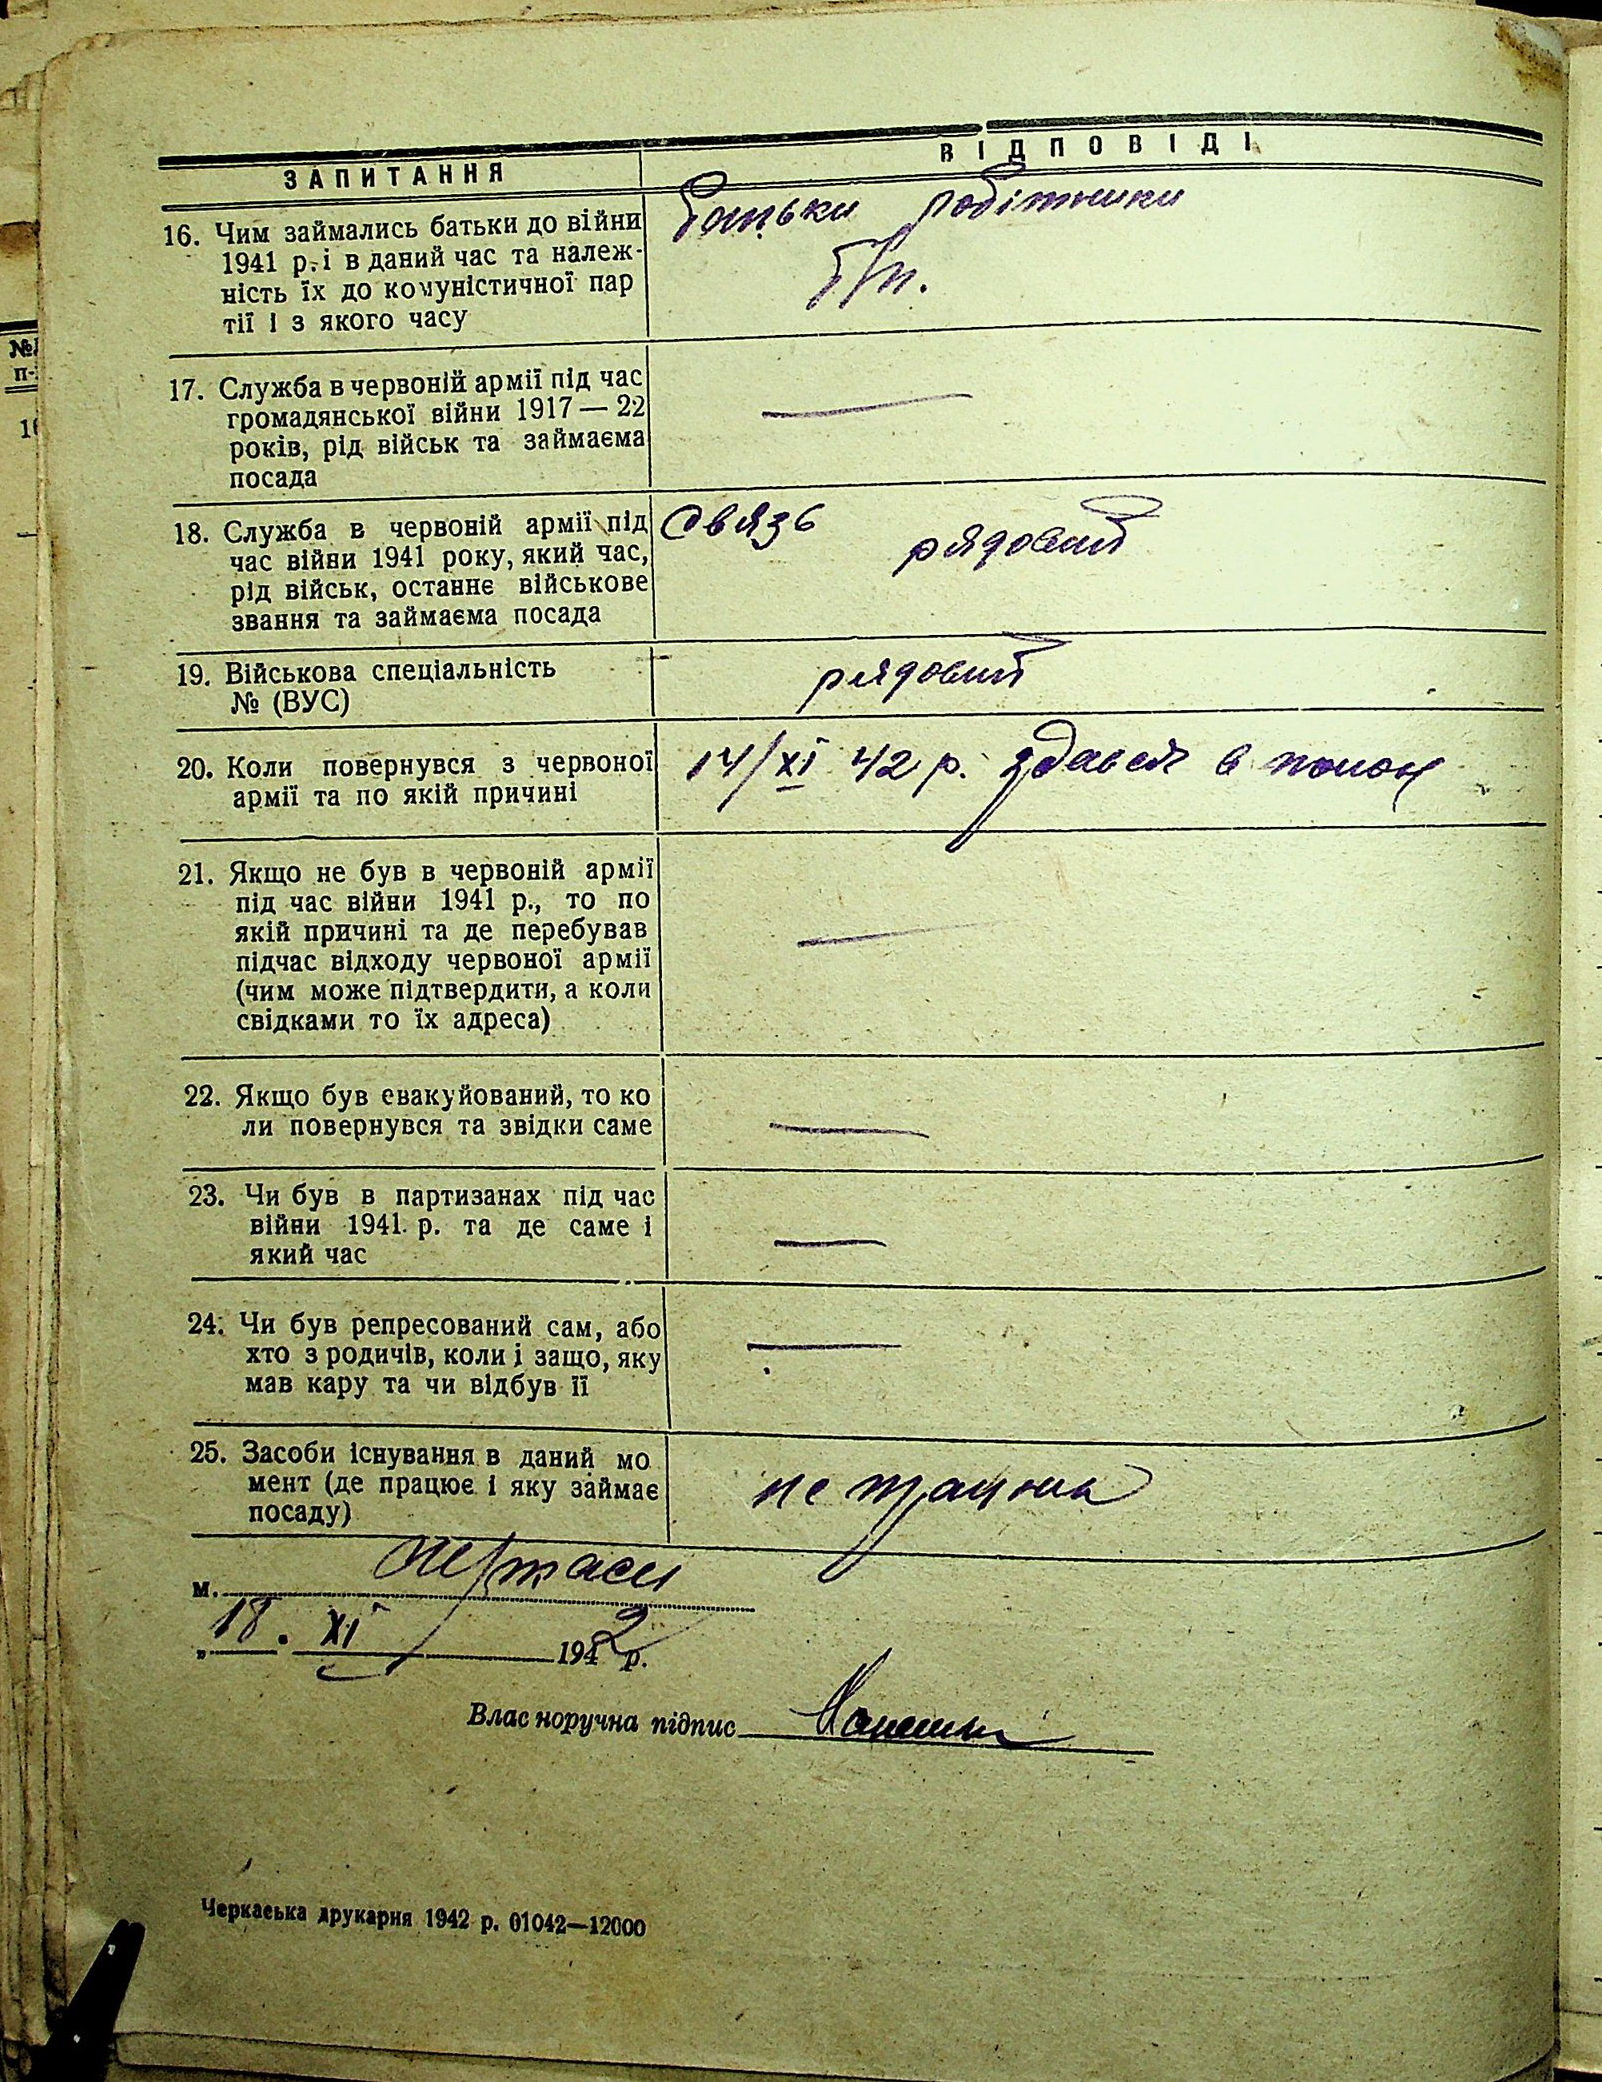 ЗАПИТАННЯ
ВІДПОВІДІ
16. Чим займались батьки до війни
1941 р. і в даний час та належ-
ність їх до комуністичної пар
тії і з якого часу
Батьки робітники
б/п.
17. Служба в червоній армії під час
громадянської війни 1917 — 22
років, рід військ та займаєма
посада
—
18. Служба в червоній армії під
час війни 1941 року, який час,
рід військ, останнє військове
звання та займаєма посада
Связь рядовий
19. Військова спеціальність
№ (ВУС)
рядовий
20. Коли повернувся з червоної
армії та по якій причині
14/XI 42 р. здався в полон
21. Якщо не був в червоній армії
під час війни 1941 р., то по
якій причині та де перебував
підчас відходу червоної армії
(чим може підтвердити, а коли
свідками то їх адреса)
—
22. Якщо був евакуйований, то ко
ли повернувся та звідки саме
—
23. Чи був в партизанах під час
війни 1941. р. та де саме і
який час
—
24. Чи був репресований сам, або
хто з родичів, коли і защо, яку
мав кару та чи відбув її
—
25. Засоби існування в даний мо
мент (де працює і яку займає
посаду)
не працюю
м. Черкаси
„18. XI 1942 р.
Власноручна підпис
Черкаська друкарня 1942 р. 01042—12000
№
п-